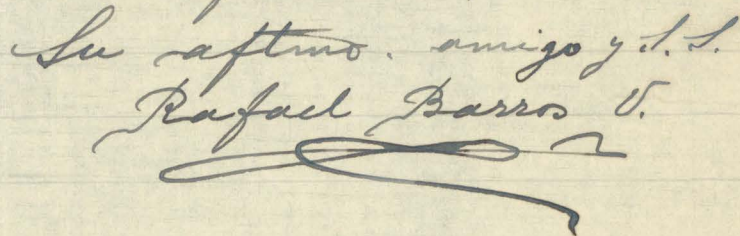 Su aftmo. amigo y S. S.
Rafael Barros V.